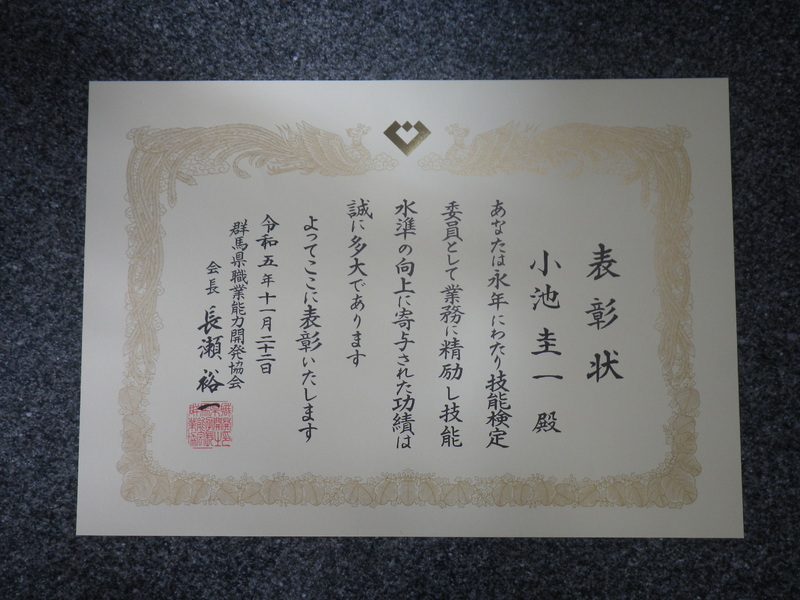 表彰状
小池圭一 殿
あなたは永年にわたり技能検定
委員として業務に精励し技能
水準の向上に寄与された功績は
誠に多大であります
よってここに表彰いたします
令和五年十一月二十二日
群馬県職業能力開発協会
会長 長瀬裕一